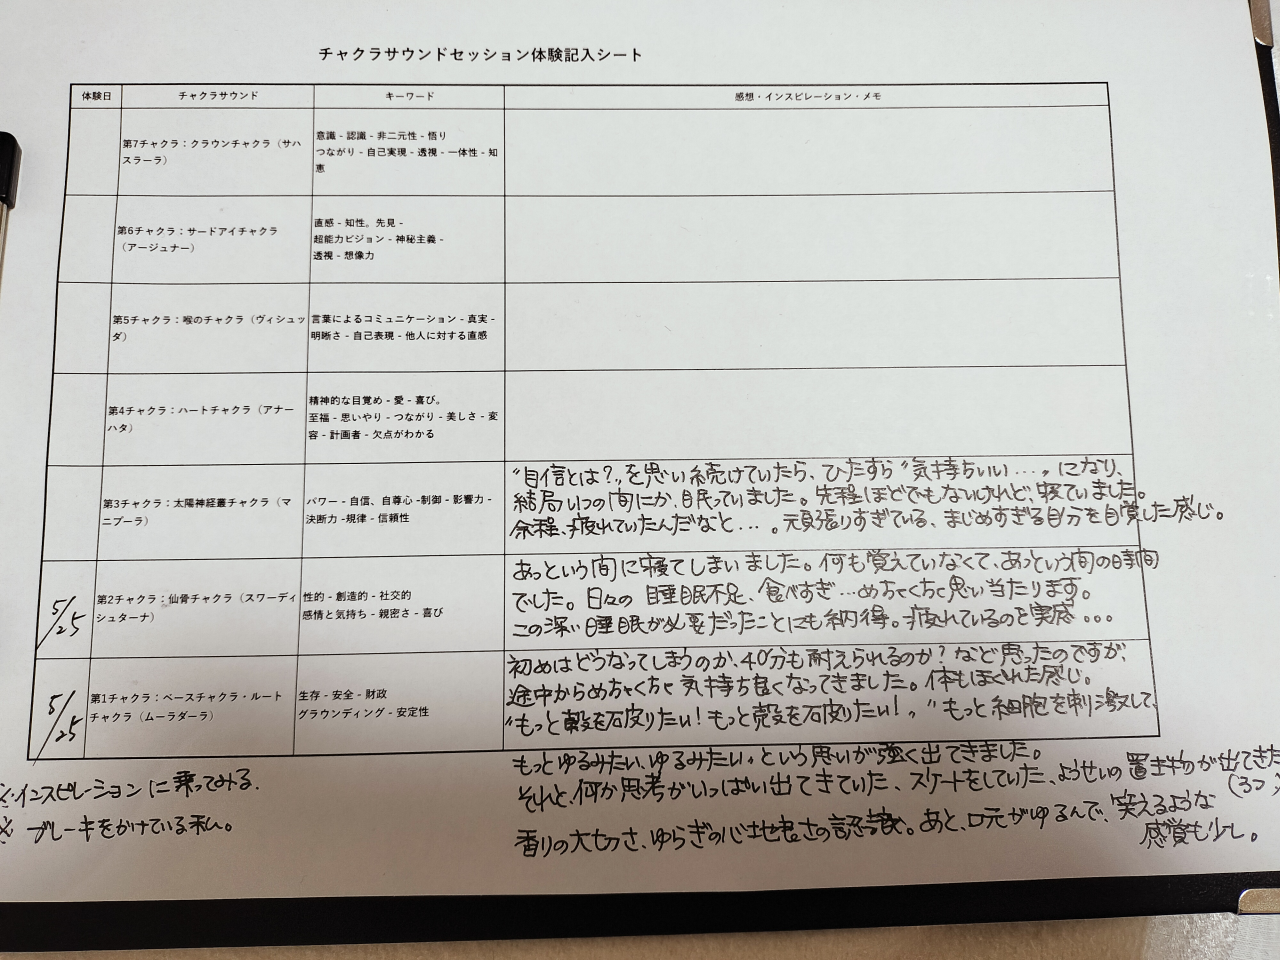 チャクラサウンドセッション体験記入シート
体験日 チャクラサウンド キーワード 感想・インスピレーション・メモ
第7チャクラ：クラウンチャクラ（サハ
スラーラ）
意識 - 認識 - 非二元性 - 悟り
つながり - 自己実現 - 透視 - 一体性 - 知
恵
第6チャクラ：サードアイチャクラ
（アージュナー）
直感 - 知性。先見 -
超能力ビジョン - 神秘主義 -
透視 - 想像力
第5チャクラ：喉のチャクラ（ヴィシュッ
ダ）
言葉によるコミュニケーション - 真実 -
明晰さ - 自己表現 - 他人に対する直感
第4チャクラ：ハートチャクラ（アナー
ハタ）
精神的な目覚め - 愛 - 喜び。
至福 - 思いやり - つながり - 美しさ - 変
容 - 計画者 - 欠点がわかる
第3チャクラ：太陽神経叢チャクラ（マ
ニプーラ）
パワー - 自信、自尊心 -制御 - 影響力 -
決断力 -規律 - 信頼性
"自信とは？"を思い続けていたら、ひたすら"気持ちいい…"になり、
結局いつの間にか、眠っていました。先程ほどでもないけれど、寝ていました。
余程、疲れていたんだなと…。頑張りすぎている、まじめすぎる自分を自覚した感じ。
5/25
第2チャクラ：仙骨チャクラ（スワーディ
シュターナ）
性的 - 創造的 - 社交的
感情と気持ち - 親密さ - 喜び
あっという間に寝てしまいました。何も覚えていなくて、あっという間の時間
でした。日々の睡眠不足、食べすぎ…めちゃくちゃ思い当たります。
この深い睡眠が必要だったことにも納得。疲れているのを実感...
5/25
第1チャクラ：ベースチャクラ・ルート
チャクラ（ムーラダーラ）
生存 - 安全 - 財政
グラウンディング - 安定性
初めはどうなってしまうのか、40分も耐えられるのか？など思ったのですが、
途中からめちゃくちゃ気持ち良くなってきました。体もほぐれた感じ。
"もっと殻を破りたい！もっと殻を破りたい！""もっと細胞を刺激して、
もっとゆるみたい、ゆるみたい"という思いが強く出てきました。
それと、何か思考がいっぱい出てきていた、スケートをしていた、ようせいの置き物が出てきた
(3つ)
香りの大切さ、ゆらぎの心地良さの認識。あと、口元がゆるんで、笑えるような
感覚も少し。
※インスピレーションに乗ってみる。
※ブレーキをかけている私。